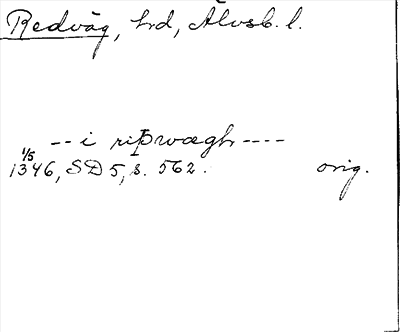 Redväg, hd, Älvsb. l.
-- i riþwægh ----
1/5
1346, SD 5, s. 562. orig.